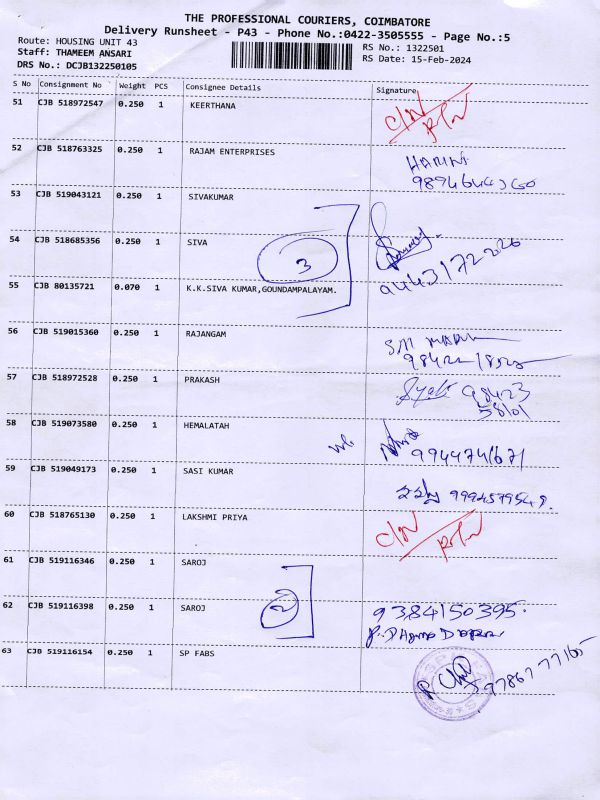 THE PROFESSIONAL COURIERS, COIMBATORE
Delivery Runsheet - P43 - Phone No.:0422-3505555 - Page No.:5
Route: HOUSING UNIT 43
RS No.: 1322501
Staff: THAMEEM ANSARI
RS Date: 15-Feb-2024
DRS No.: DCJB132250105
S No Consignment No Weight PCS Consignee Details Signature
51 CJB 518972547 0.250 1 KEERTHANA
52 CJB 518763325 0.250 1 RAJAM ENTERPRISES HARINI
53 CJB 519043121 0.250 1 SIVAKUMAR
54 CJB 518685356 0.250 1 SIVA
3
55 CJB 80135721 0.070 1 K.K.SIVA KUMAR,GOUNDAMPALAYAM.
56 CJB 519015360 0.250 1 RAJANGAM
57 CJB 518972528 0.250 1 PRAKASH 98423
58101
58 CJB 519073580 0.250 1 HEMALATAH 9944741671
59 CJB 519049173 0.250 1 SASI KUMAR
60 CJB 518765130 0.250 1 LAKSHMI PRIYA
61 CJB 519116346 0.250 1 SAROJ
62 CJB 519116398 0.250 1 SAROJ 2 9384150395.
63 CJB 519116154 0.250 1 SP FABS